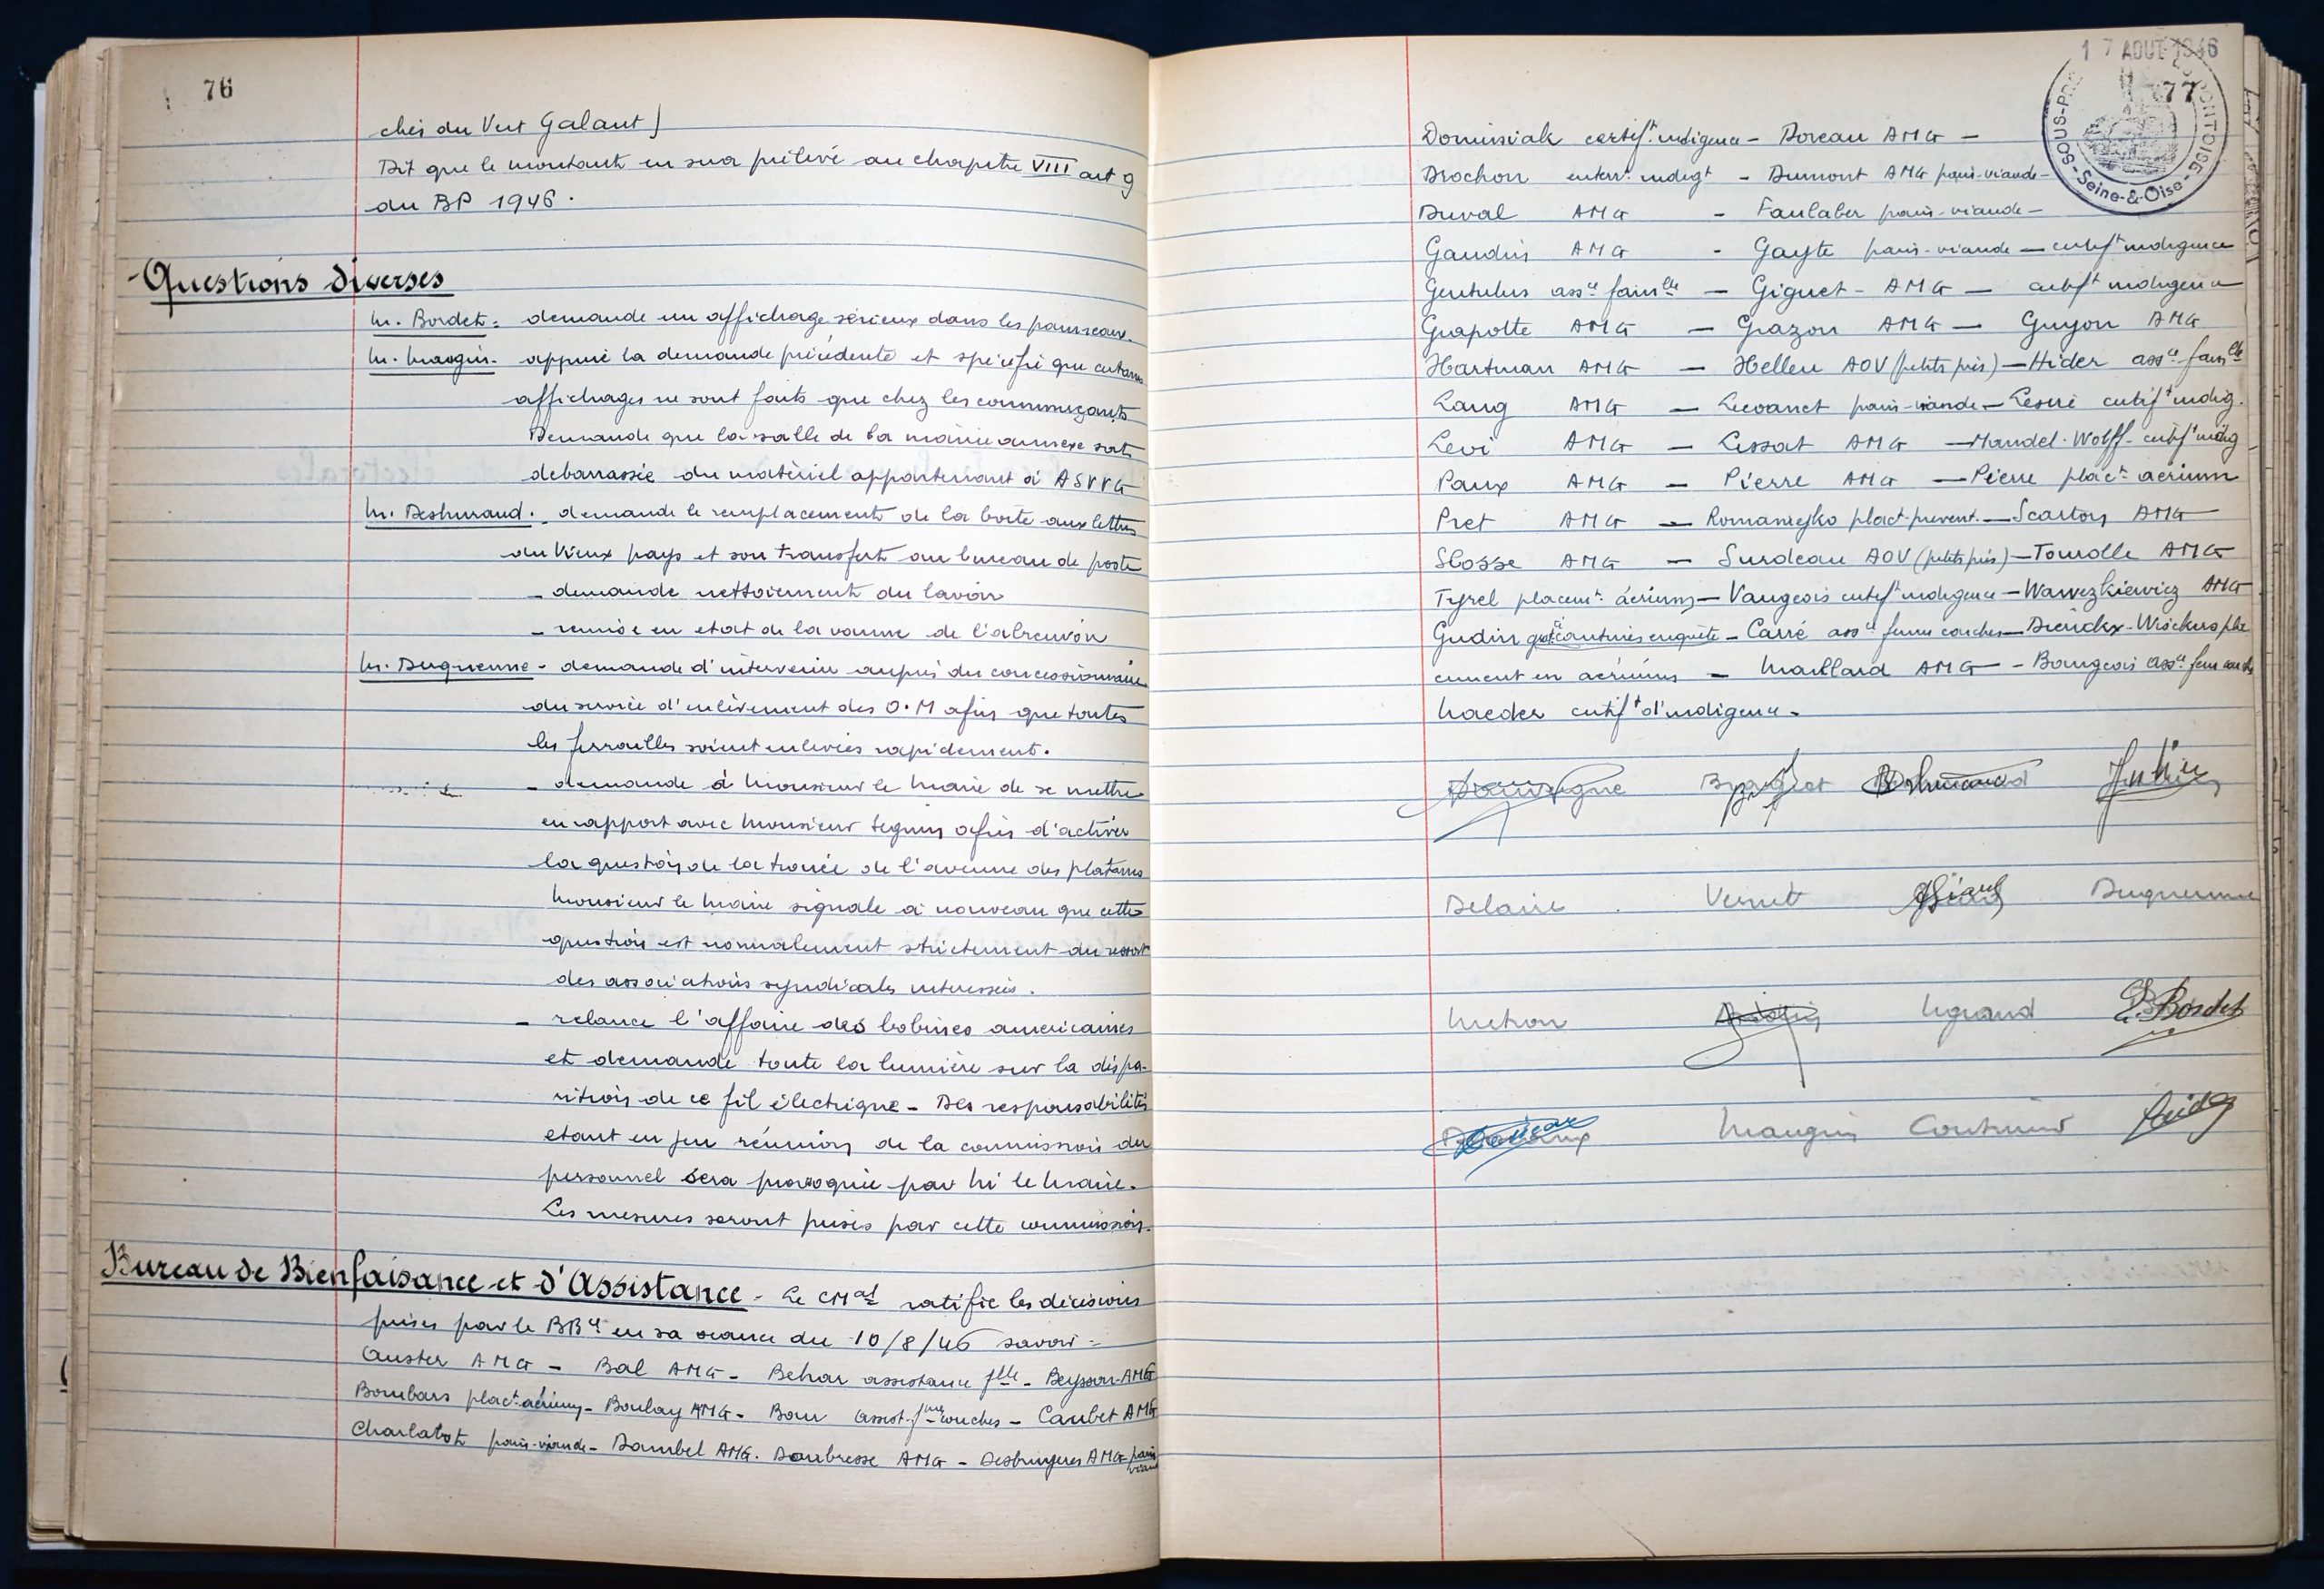 76
chés du Vert Galant)
Dit que le montant en sera prélevé au chapitre VIII art 9
du BP 1946.
Questions diverses
M. Bordet: demande un affichage sérieux dans les panneaux.
M. Maugin - appuie la demande précédente et spécifie que certains
affichages ne sont faits que chez les commerçants
Demande que la salle de la mairie annexe soit
debarrassée du matériel appartenant à ASVVG
M. Deshuraud. demande le remplacement de la boite aux lettres
du Vieux pays et son transfert au bureau de poste
- demande nettoiement du lavoir
- remise en etat de la vanne de l'abreuvoir
M. Duquenne - demande d'intervenir auprès du concessionnaire
du service d'enlèvement des O.M afin que toutes
les ferrailles soient enlevées rapidement.
- demande à Monsieur le Maire de se mettre
en rapport avec Monsieur Seguin afin d'activer
la question de la trouée de l'avenue des platanes
Monsieur le Maire signale à nouveau que cette
question est normalement strictement du ressort
des associations syndicales intéressées.
- relance l'affaire des bobines americaines
et demande toute la lumière sur la dispa-
rition de ce fil électrique - Des responsabilités
etant en jeu réunion de la commission du
personnel sera provoquée par M le Maire.
Les mesures seront prises par cette commission.
Bureau de Bienfaisance et d'Assistance - Le CMal ratifie les décisions
prises par le BBce en sa séance du 10/8/46 savoir =
Auster AMG - Bal AMG - Behar assistance flle - Beysson AMG
Bombars plact aérium - Boulay AMG - Bour assist. fmes couches - Caubet AMG
Charlatot pain-viande - Dambel AMG. Doubresse AMG - Desbruyeres AMG pain
viande
17 AOUT 1946
77
SOUS-PRÉ PONTOISE
-Seine-&-Oise-
Dominsiak certift indigence - Doreau AMG -
Drochon interv. indigt - Dumont AMG pain-viande -
Duval AMG - Faulaber pain-viande -
Gaudin AMG - Gayte pain-viande - certift indigence
Gentulus assce famlle - Giguet - AMG - certift indigence
Grapotte AMG - Grazon AMG - Guyon AMG
Hartman AMG - Helleu AOV (petits prés) - Hider assce famlle
Lang AMG - Levanet pain-viande - Lesné certift indig.
Levi AMG - Lessat AMG - Mandel-Wolff - certift indig
Paux AMG - Pierre AMG - Pierre plact aérium
Pret AMG - Romaniejko plact prevent. - Scarton AMG
Slosse AMG - Surdeau AOV (petits prés) - Tourolle AMG
Tyrel placemt aérium - Vaugeois certift indigence - Wawezkiewicz AMG
Gudin gratté cantines enquête - Carré assce femme couches - Dierickx - Wisckers pla
cement en aérium - Maillard AMG - Bourgeois assce fem couche
Maeder certift d'indigence.
Dauvergne Deshuraud
Delaire Vernet Duquenne
Metron Legrand L. Bordet
Maugin Couturier